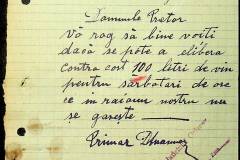 Domnule Pretor
Vă rog să bine voiti
dacă se pote a elibera
contra cost 100 litri de vin
pentru sărbatori de ore ce
in raionu nostru nu
se gaseste
Primar